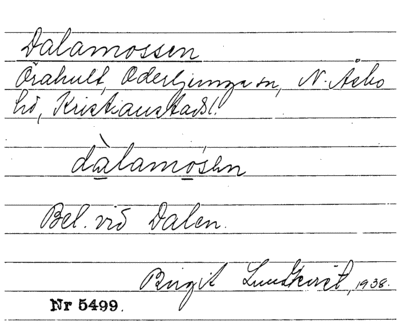 Dalamossen
Örahult, Oderljunga sn, N. Åsbo
hd, Kristianstads l.
dàlamosẹn
Bel. vid Dalen.
Birgit Lundkvist, 1938.
Nr 5499.